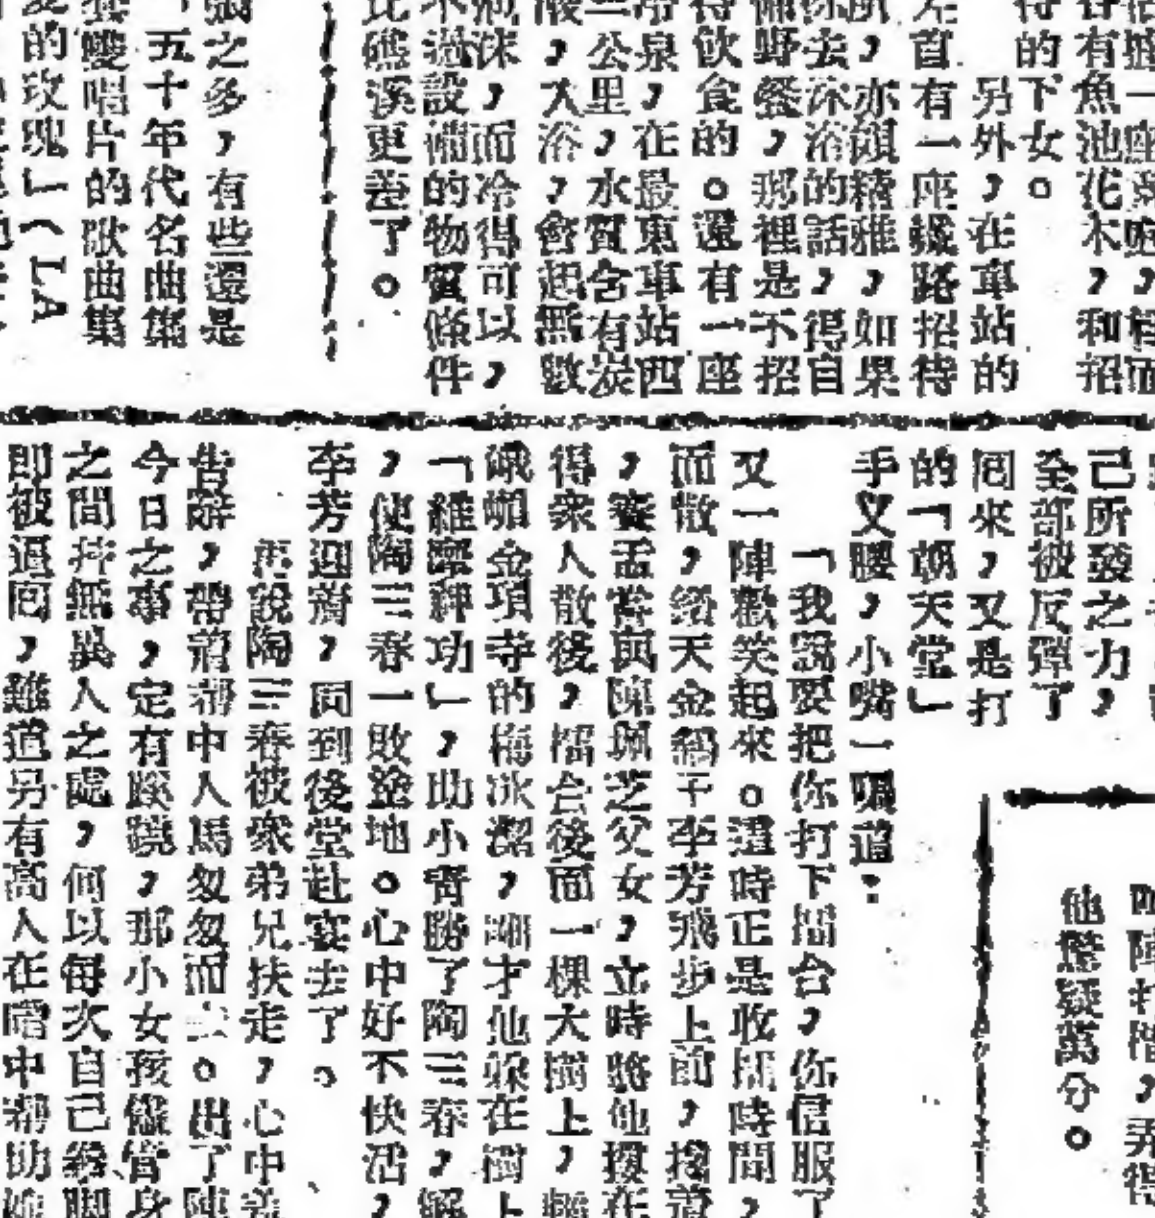 有魚池花木，和招
的下女。
另外，在車站的
左首有一座鐵路招待
所，亦頗精雅，如果
你去沐浴的話，得自
備野餐，那裡是不招
待飲食的。還有一座
冷泉，在最東車站西
三公里，水質含有炭
酸，入浴，會起無數
沫，而冷得可以，
不過設備的物質條件
比礁溪更差了。
之多，有些還是
五十年代名曲集
唱片的歌曲集
的玫瑰」（LA
己所發之力，
全部被反彈了
回來，又是打
的「朝天堂」
手叉腰，小嘴一噘道：
「我說要把你打下擂台，你信服了
又一陣歡笑起來。這時正是收擂時間，
而散，繆天金繆于李芳飛步上前，摟着
，賽孟嘗與陳珮芝父女，立時將他擁在
得衆人散後，擂台後面一棵大樹上，
峨嵋金頂寺的梅冰潔，剛才他躲在樹上
「維摩神功」，助小霄勝了陶三春，解
，使陶三春一敗塗地。心中好不快活，
李芳迎着，同到後堂赴宴去了。
再說陶三春被衆弟兄扶走，心中羞
告辭，帶着幫中人馬匆匆而去。出了陳
今日之事，定有蹊蹺，那小女孩儘管身
之間並無異人之處，何以每次自己發腳
即被逼回，難道另有高人在暗中幫助她
他驚疑萬分。